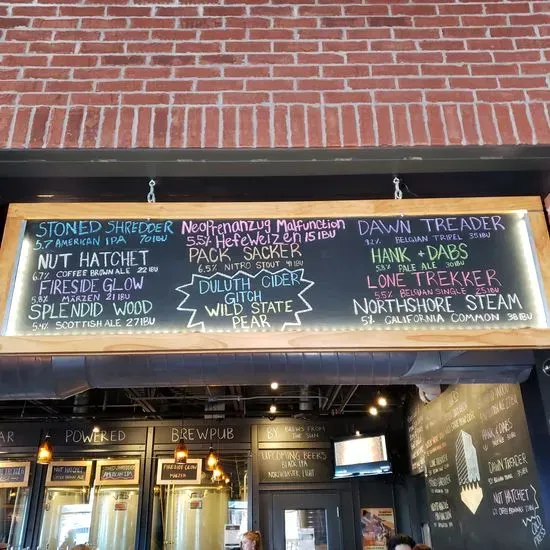 STONED SHREDDER
5.7 AMERICAN IPA 70IBU
NUT HATCHET
6.7% COFFEE BROWN ALE 22 IBU
FIRESIDE GLOW
5.8% MÄRZEN 21 IBU
SPLENDID WOOD
5.4% SCOTTISH ALE 27 IBU
Neoprenanzug Malfunction
5.5% HEFEWEIZEN 15 IBU
PACK SACKER
6.5% NITRO STOUT 41 IBU
DULUTH CIDER
GITCH
WILD STATE
PEAR
DAWN TREADER
9.2% BELGIAN TRIPEL 35IBU
HANK & DABS
5.8% PALE ALE 30IBU
LONE TREKKER
5.5% BELGIAN SINGLE 25IBU
NORTHSHORE STEAM
5% CALIFORNIA COMMON 38 IBU
POWERED
BREWPUB
BY BREWS FROM
THE SUN
UPCOMING BEERS
BLACK IPA
NUT HATCHET
STONED SHREDDER
AMERICAN IPA
FIRESIDE GLOW
HANK &
DABS
DAWN
TREADER
NUT HATCHET